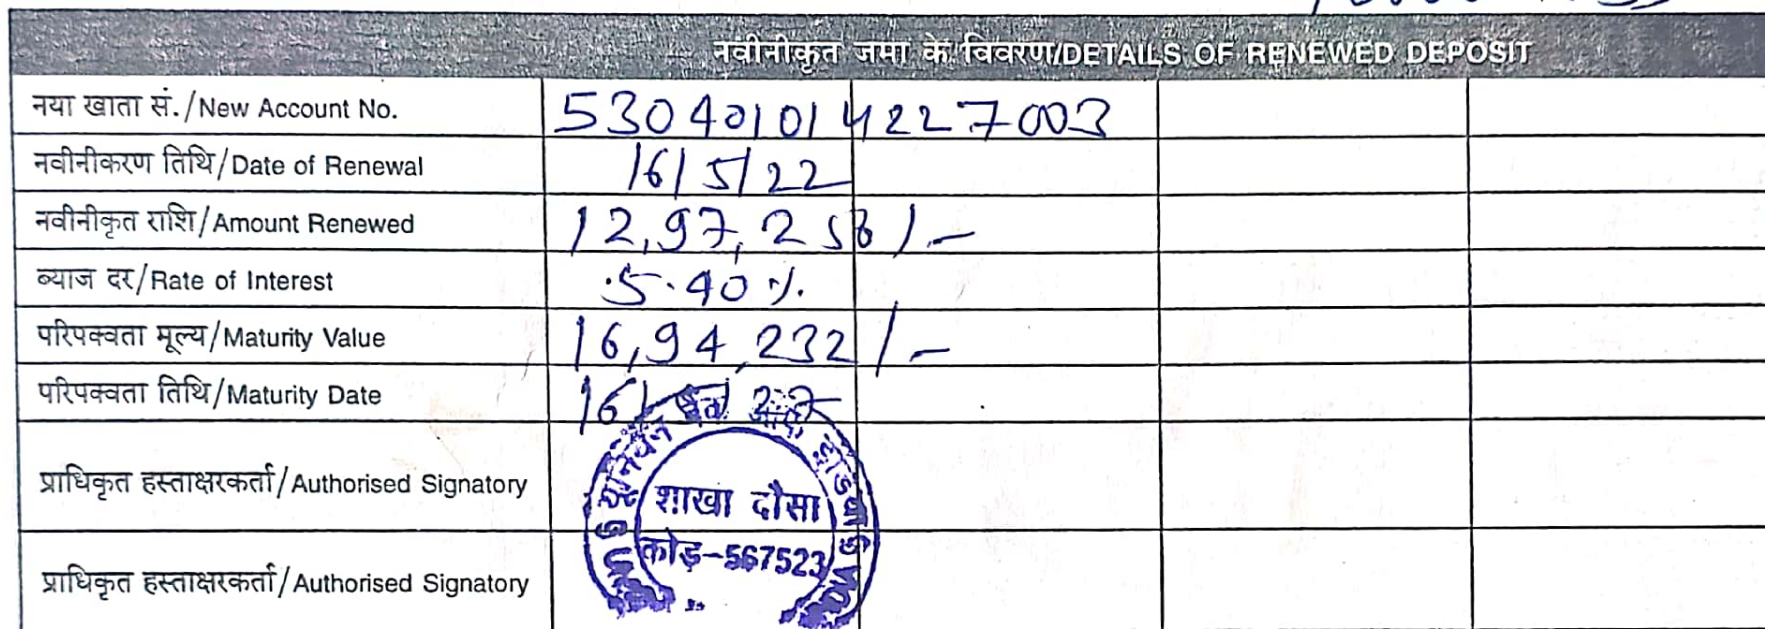 नवीनीकृत जमा के विवरण/DETAILS OF RENEWED DEPOSIT
नया खाता सं./New Account No. 530401014227003
नवीनीकरण तिथि/Date of Renewal 16/5/22
नवीनीकृत राशि/Amount Renewed 12,97,258/-
ब्याज दर/Rate of Interest 5.40%
परिपक्वता मूल्य/Maturity Value 16,94,232/-
परिपक्वता तिथि/Maturity Date 16/ 27
प्राधिकृत हस्ताक्षरकर्ता/Authorised Signatory
शाखा दौसा
कोड़-567523
प्राधिकृत हस्ताक्षरकर्ता/Authorised Signatory